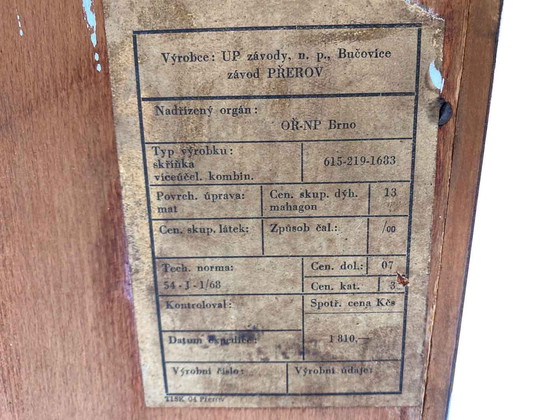 Výrobce: UP závody, n. p., Bučovice
závod PŘEROV
Nadřízený orgán:
OŘ-NP Brno
Typ výrobku:
skříňka
víceúčel. kombin.
615-219-1633
Povrch. úprava:
mat
Cen. skup. dýh.
mahagon
13
Cen. skup. látek:
Způsob čal.:
/00
Tech. norma:
54-J-1/68
Cen. dol.:
07
Cen. kat.
3
Kontroloval:
Spotř. cena Kčs
Datum expedice:
1 810,—
Výrobní číslo:
Výrobní údaje:
TISK, 04 Přerov